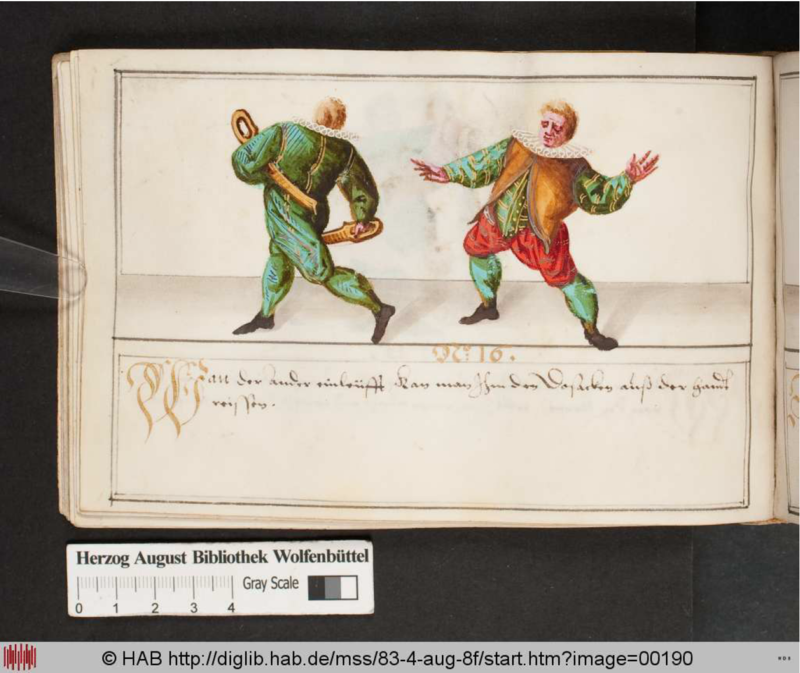 No: 16.
Wan der ander einleüfft kan man Ihm den Dosacken auß der handt
reissen.
Herzog August Bibliothek Wolfenbüttel
Gray Scale
0 1 2 3 4
© HAB http://diglib.hab.de/mss/83-4-aug-8f/start.htm?image=00190